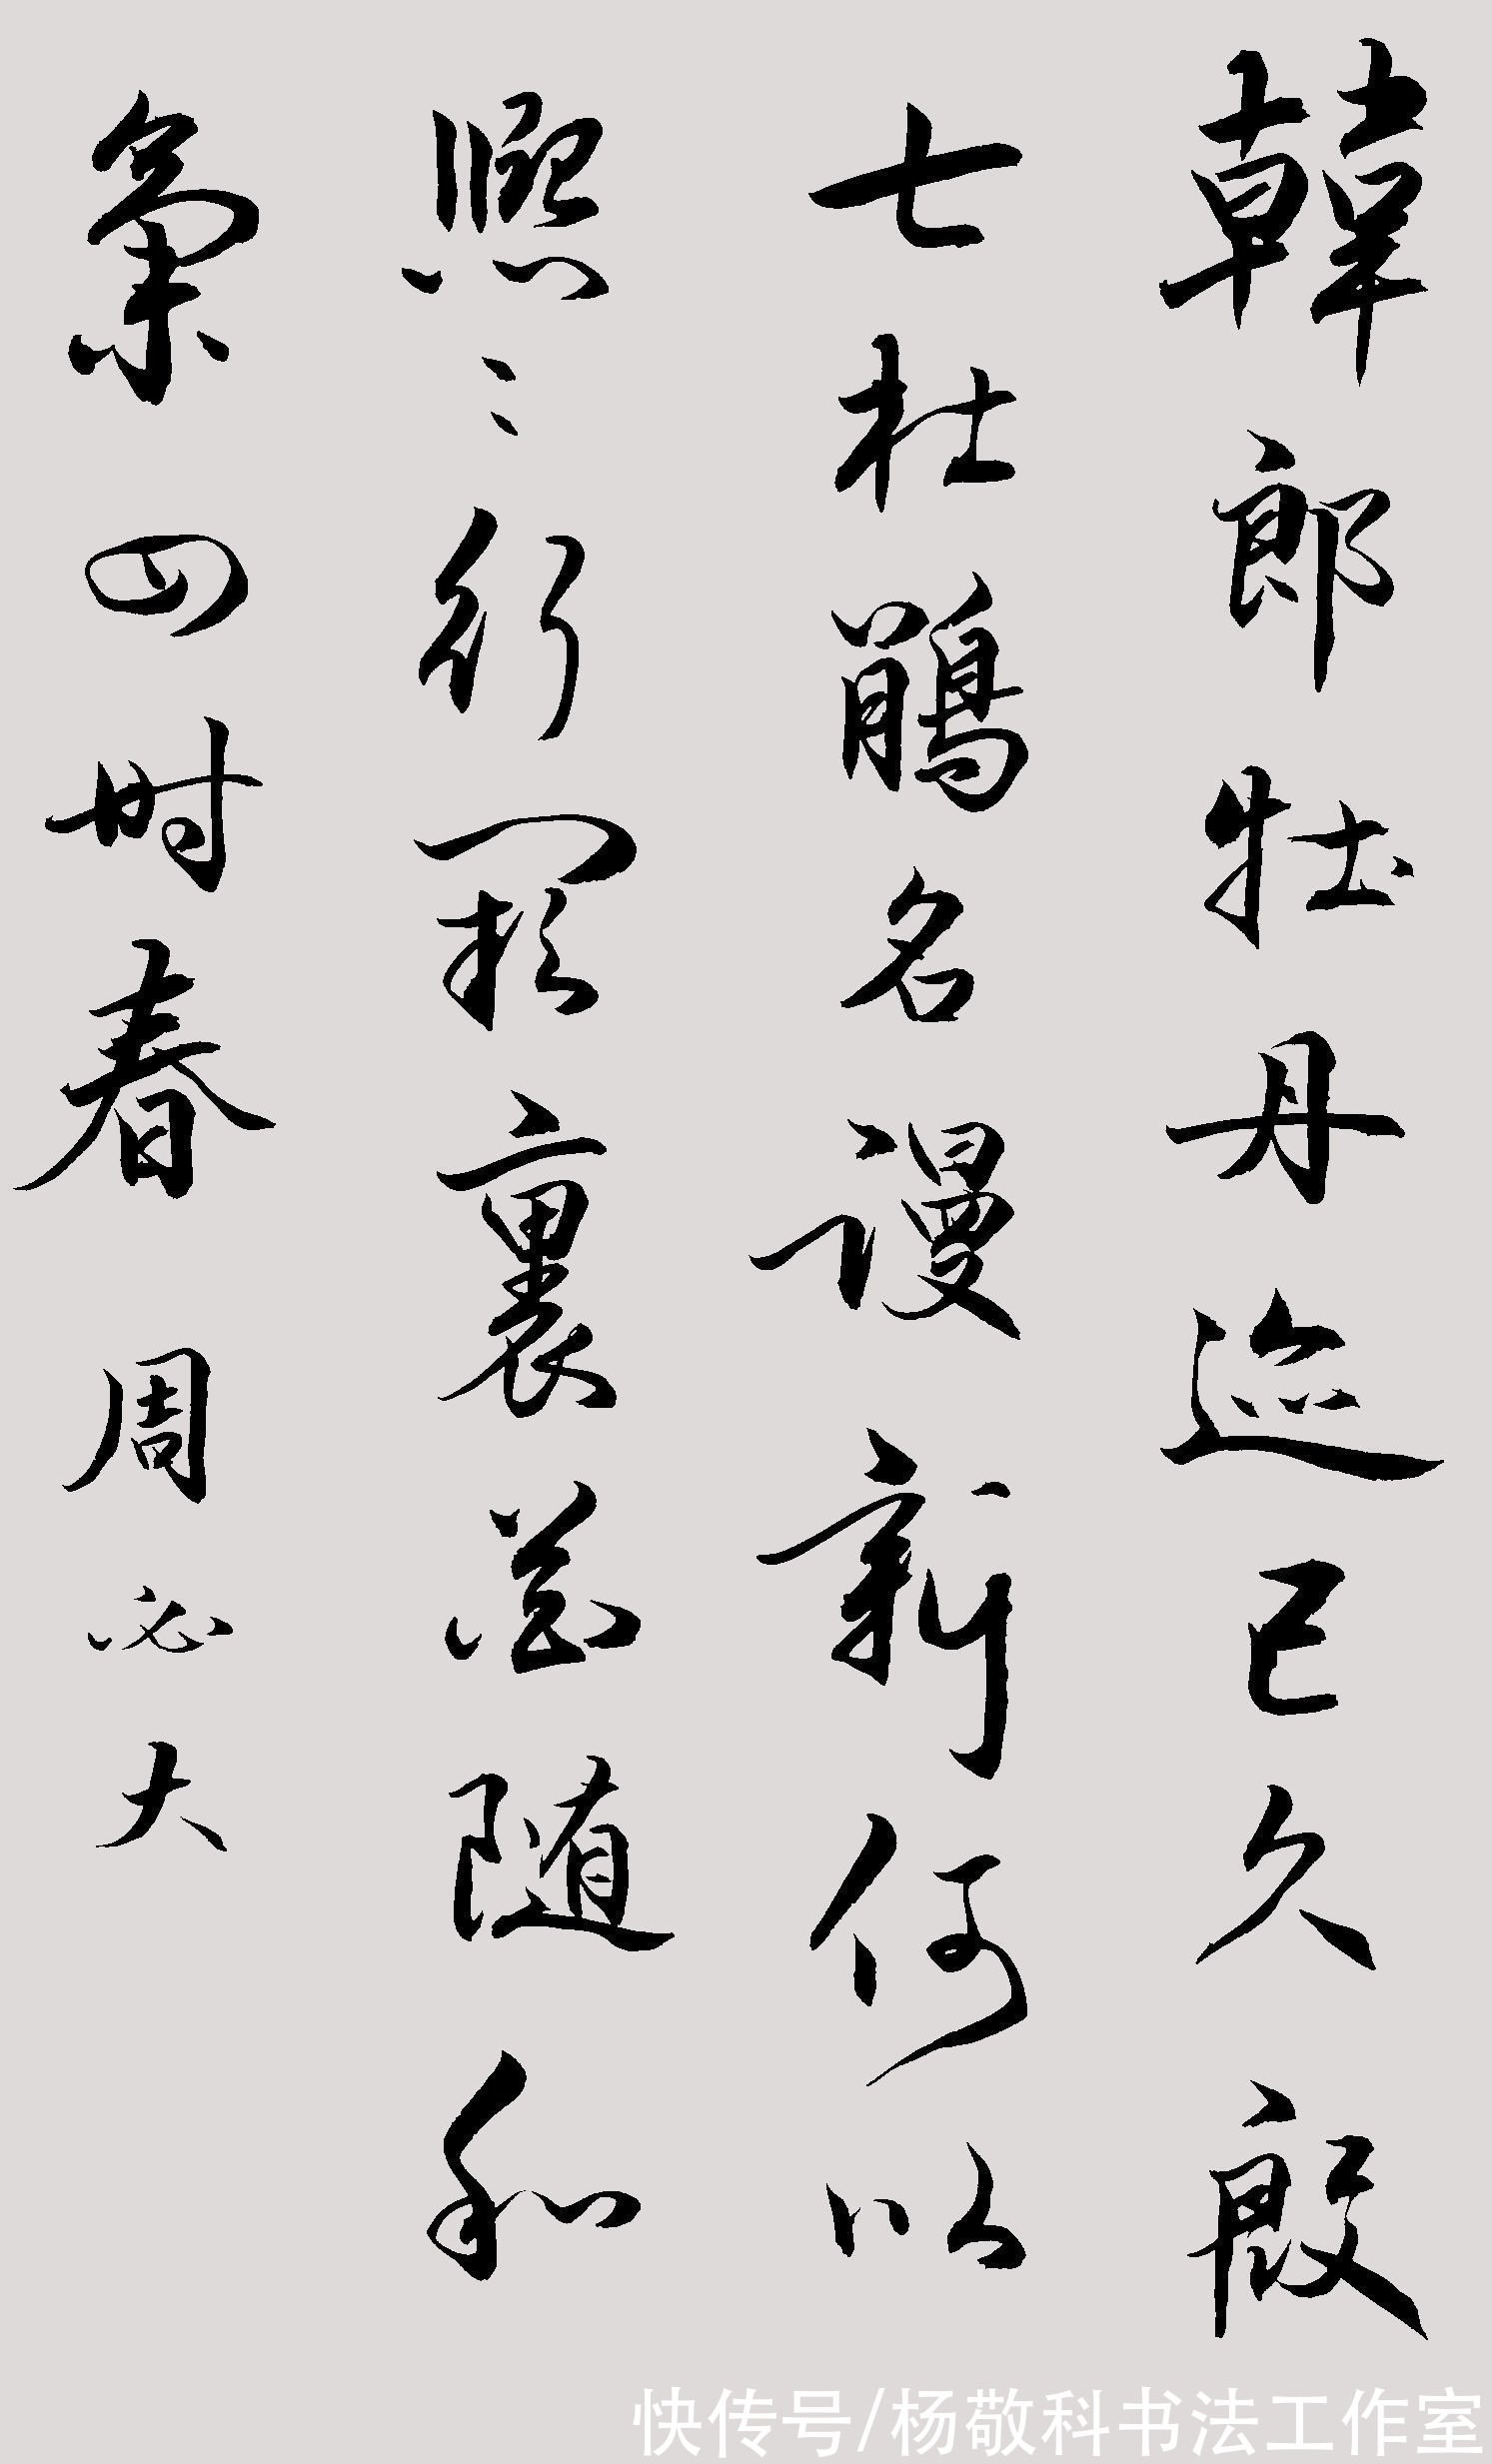 韓郎牡丹迹已久殷
七杜鵑名谩新何以
熙〻行窠裏花随和
氣四时春 周必大
快传号/杨敬科书法工作室